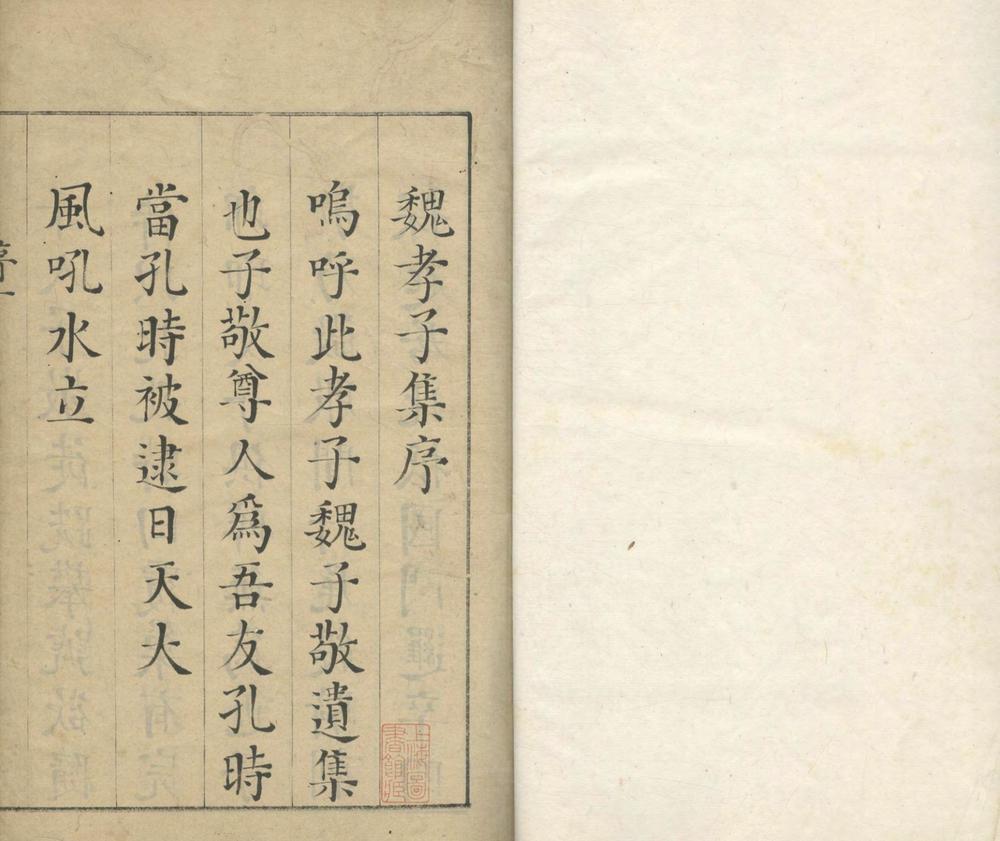 魏孝子集序
嗚呼此孝子魏子敬遺集
也子敬尊人爲吾友孔時
當孔時被逮日天大
風吼水立
序一
上海圖
書館藏